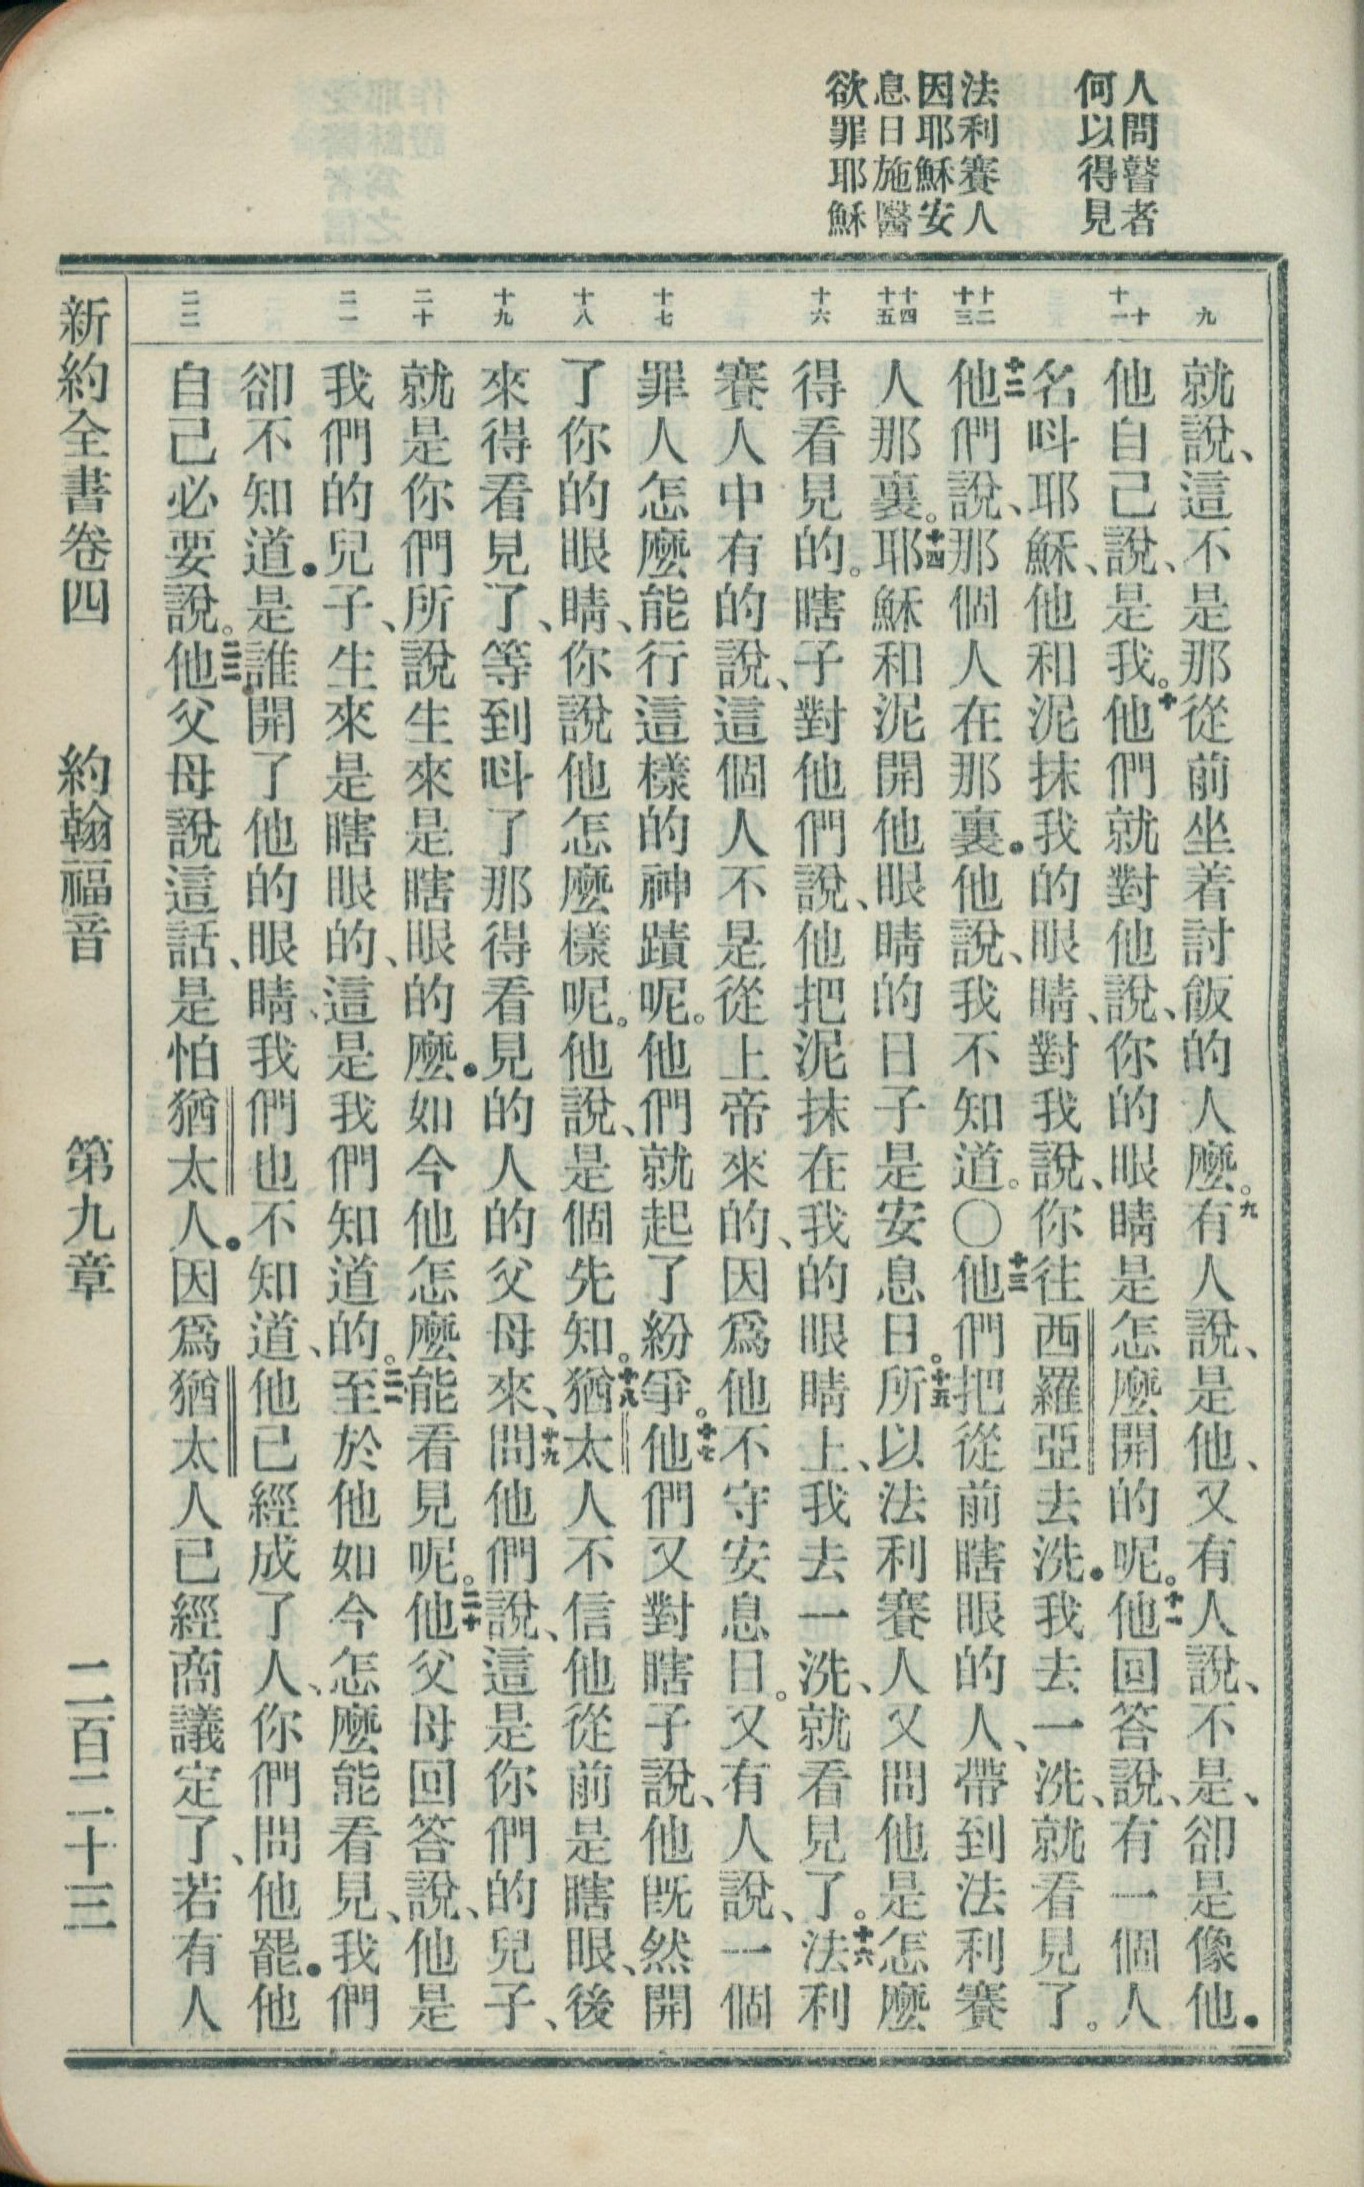 人問瞽者
何以得見
法利賽人
因耶穌安
息日施醫
欲罪耶穌
九
十
十一
十二
十三
十四
十五
十六
十七
十八
十九
二十
二一
二二
就說、這不是那從前坐着討飯的人麼。九有人說、是他、又有人說、不是、卻是像他．
他自己說、是我。十他們就對他說、你的眼睛是怎麼開的呢。十一他回答說、有一個人
名呌耶穌、他和泥抹我的眼睛、對我說、你往西羅亞去洗．我去一洗、就看見了。
十二他們說、那個人在那裏．他說、我不知道。〇十三他們把從前瞎眼的人、帶到法利賽
人那裏。十四耶穌和泥開他眼睛的日子是安息日。十五所以法利賽人又問他是怎麼
得看見的。瞎子對他們說、他把泥抹在我的眼睛上、我去一洗、就看見了。十六法利
賽人中有的說、這個人不是從上帝來的、因爲他不守安息日。又有人說、一個
罪人怎麼能行這樣的神蹟呢。他們就起了紛爭。十七他們又對瞎子說、他既然開
了你的眼睛、你說他怎麼樣呢。他說、是個先知。十八猶太人不信他從前是瞎眼、後
來得看見了、等到呌了那得看見的人的父母來、十九問他們說、這是你們的兒子、
就是你們所說生來是瞎眼的麼．如今他怎麼能看見呢。二十他父母回答說、他是
我們的兒子、生來是瞎眼的、這是我們知道的。二一至於他如今怎麼能看見、我們
卻不知道．是誰開了他的眼睛、我們也不知道、他已經成了人、你們問他罷．他
自己必要說。二二他父母說這話、是怕猶太人．因爲猶太人已經商議定了、若有人
新約全書卷四 約翰福音 第九章 二百二十三